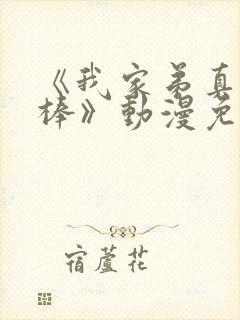 《我家弟真
棒》動漫免
宿蘆花